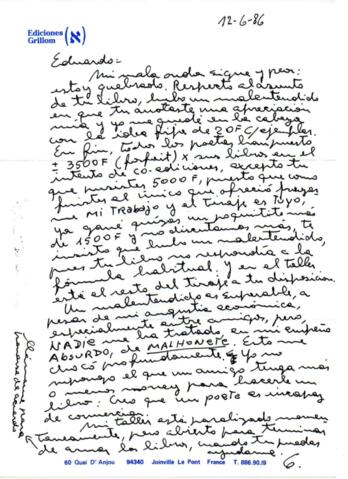 Ediciones
Grillom
12-6-86
Eduardo:-
Mi mala onda sigue y peor:
estoy quebrado. Respecto al asunto
de tu libro, hubo un malentendido
en que tu anotaste una apreciación
mía y yo me quedé en la cabeza
con la idea fija de 20F c/ejemplar.
En fin, todos los poetas han puesto
± 3500F (forfait) x sus libros en el
intento de co-ediciones, excepto tu
que pusistes 5000F, puesto que como
fuistes al único que ofreció
me MI TRABAJO y el tiraje es TUYO,
ya gané quizás un poquitito más
de 1500F y no discutamos más, te
insisto que hubo un malentendido,
pues tu libro no respondía a la
fórmula habitual: y en el taller
está el resto del tiraje a tu disposición.
Un malentendido es superable, a
pesar de mi angustia económica,
especialmente entre amigos, pero,
NADIE me ha tratado, en mi empeño
ABSURDO, de MALHONETE. Esto me
chocó profundamente, yo no
supongo el que un amigo tenga más
o menos money para hacerle un
libro: Creo que un poeta es incapaz
de comerciar.
Mi taller está paralizado momen-
táneamente, pero abierto para terminar
de armar los libros, cuando tu puedas
ayudarme.
6.
llámame para
ponernos de acuerdo
60 Quai D' Anjou 94340 Joinville Le Pont France T. 886.90.19